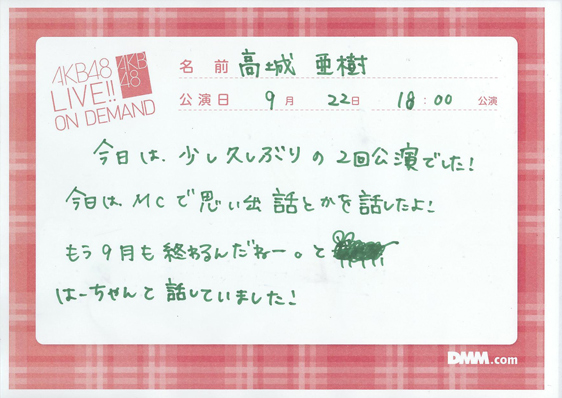 AKB48
LIVE!!
ON DEMAND
AKB
48
名 前 高城 亜樹
公演日 9月 22日 18:00 公演
今日は、少し久しぶりの2回公演でした!
今日は、MCで思い出話とかを話したよ!
もう9月も終わるんだねー。と
はーちゃんと話していました!
DMM.com